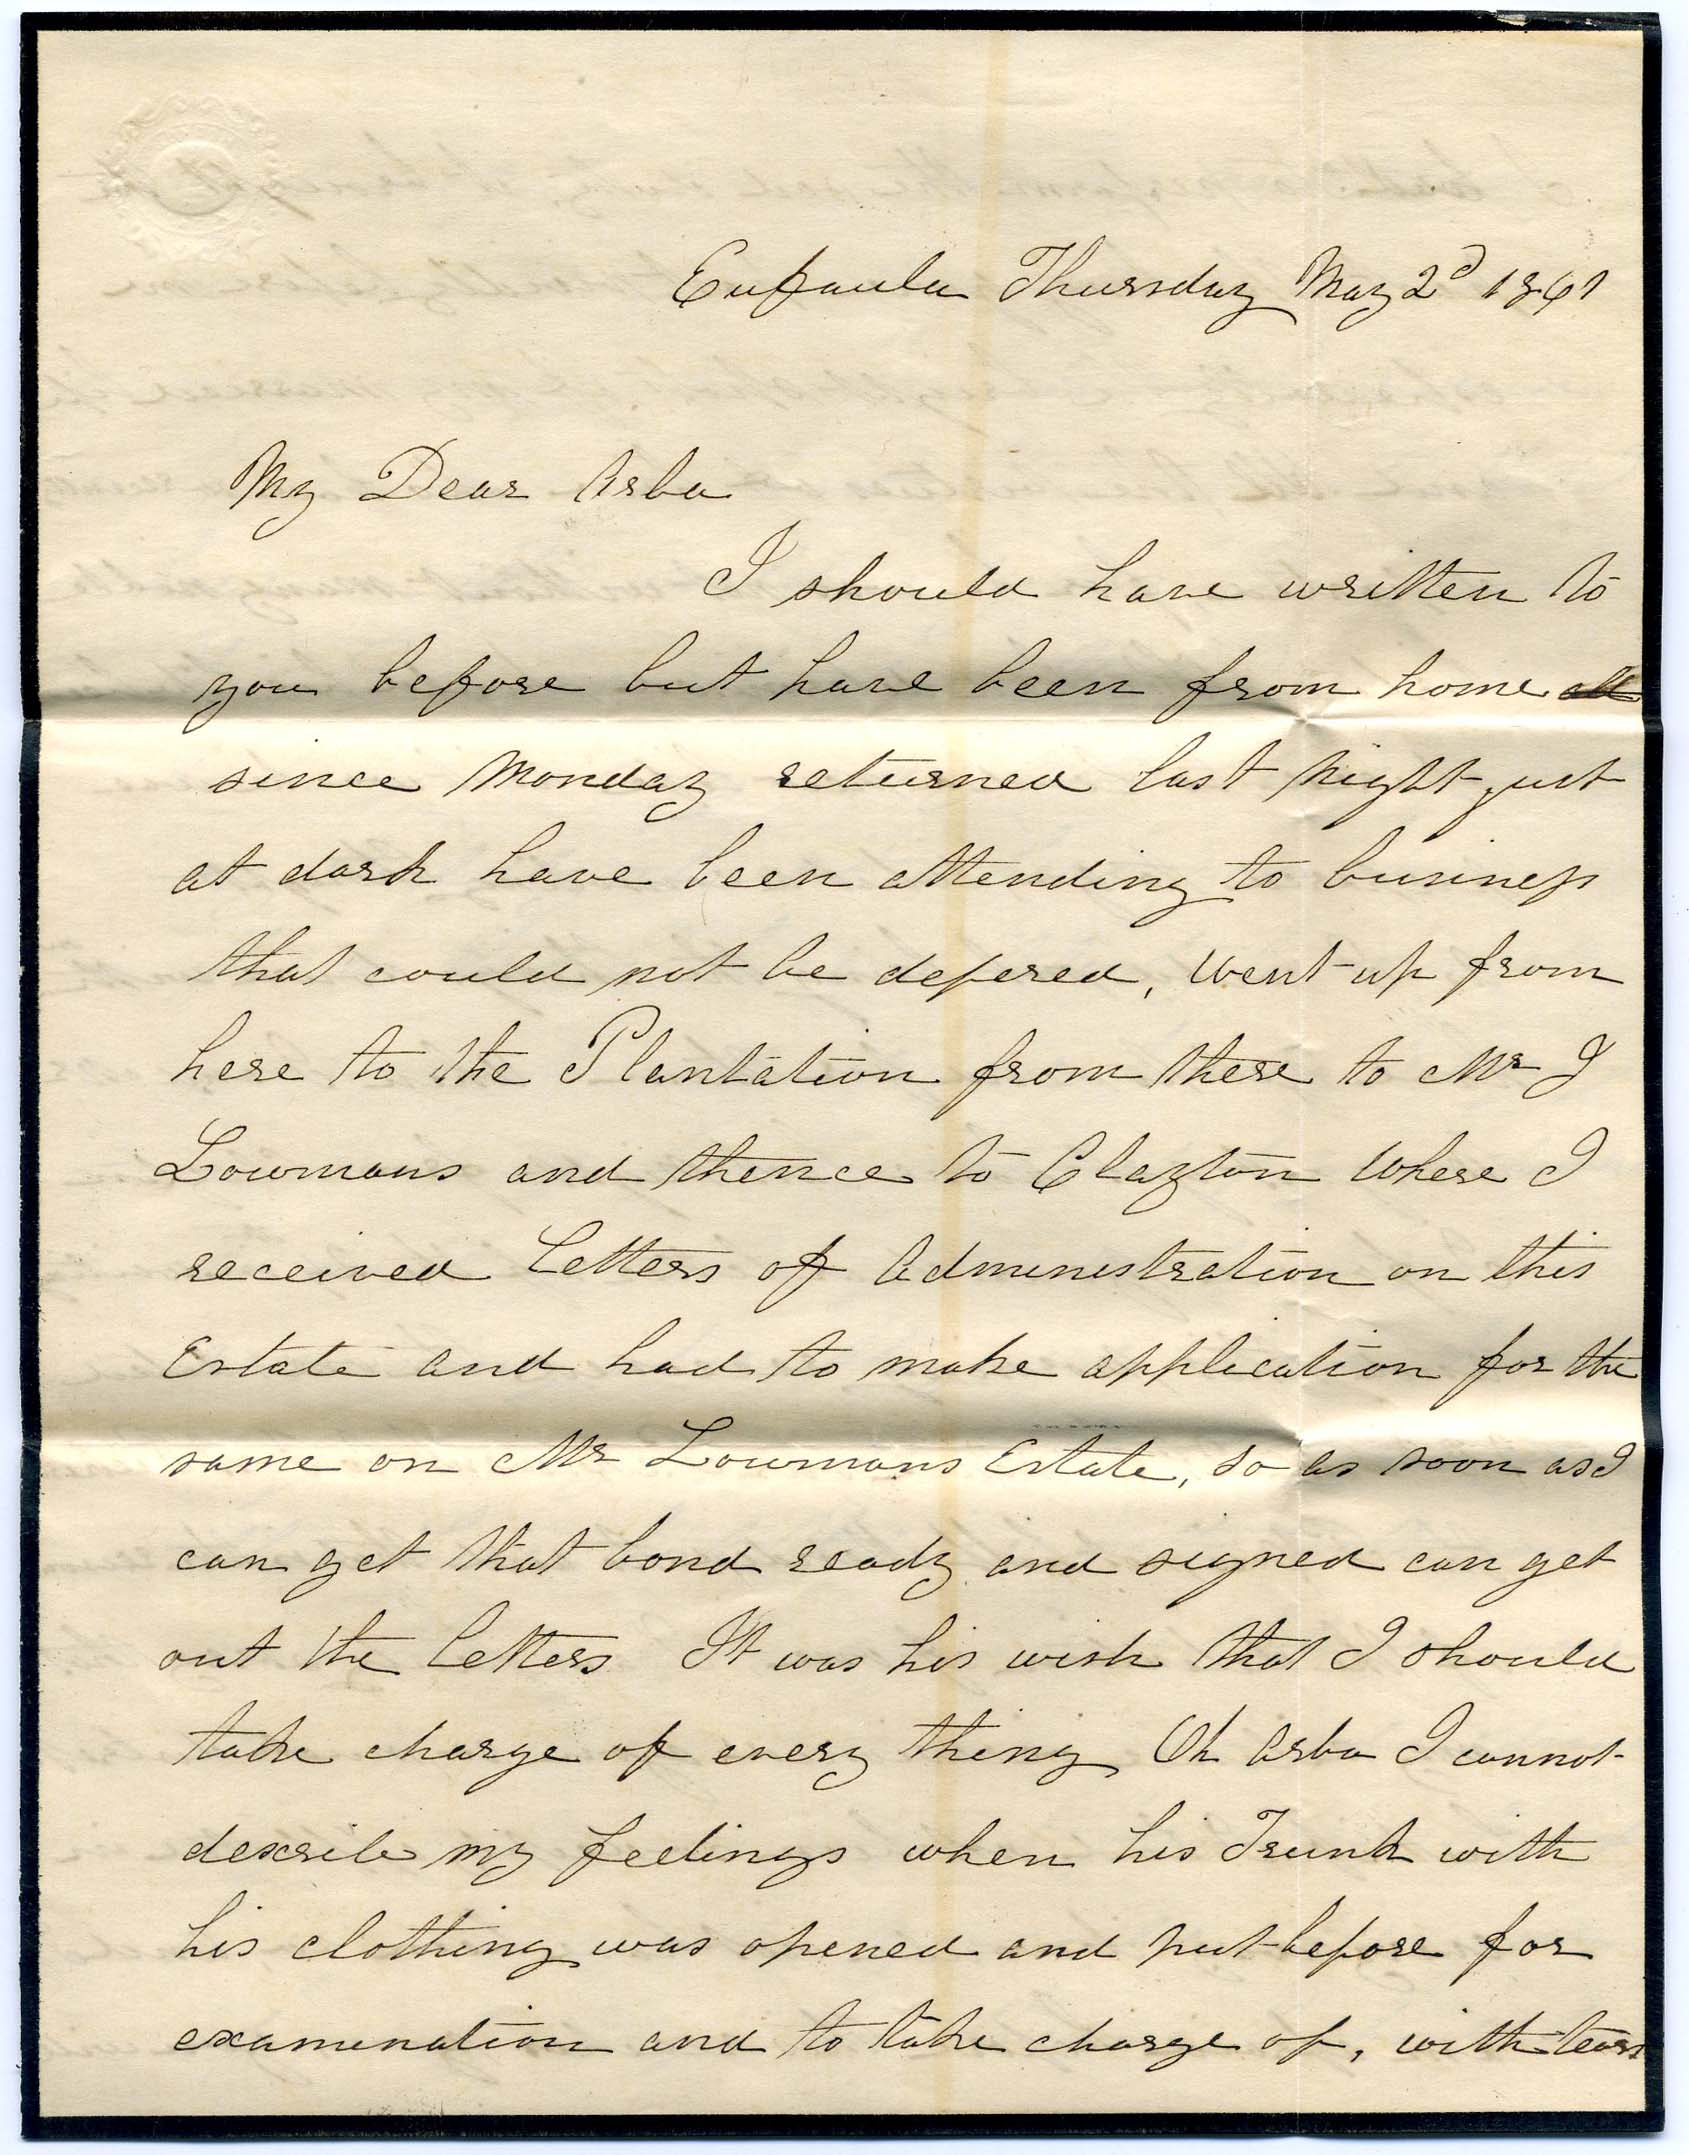 Eufaula Thursday May 2d 1861
My Dear Arba
I should have written to
you before but have been from home all
since Monday returned last night just
at dark have been attending to business
that could not be defered, went up from
here to the Plantation from there to Mr J
Lowmans and thence to Clayton where I
received Letters of Administration on this
Estate and had to make application for the
same on Mr Lowmans Estate, so as soon as I
can get that bond ready and signed can get
out the letters It was his wish that I should
take charge of every thing Oh Arba I cannot
describe my feelings when his Trunk with
his clothing was opened and put before for
examination and to take charge of, with tears